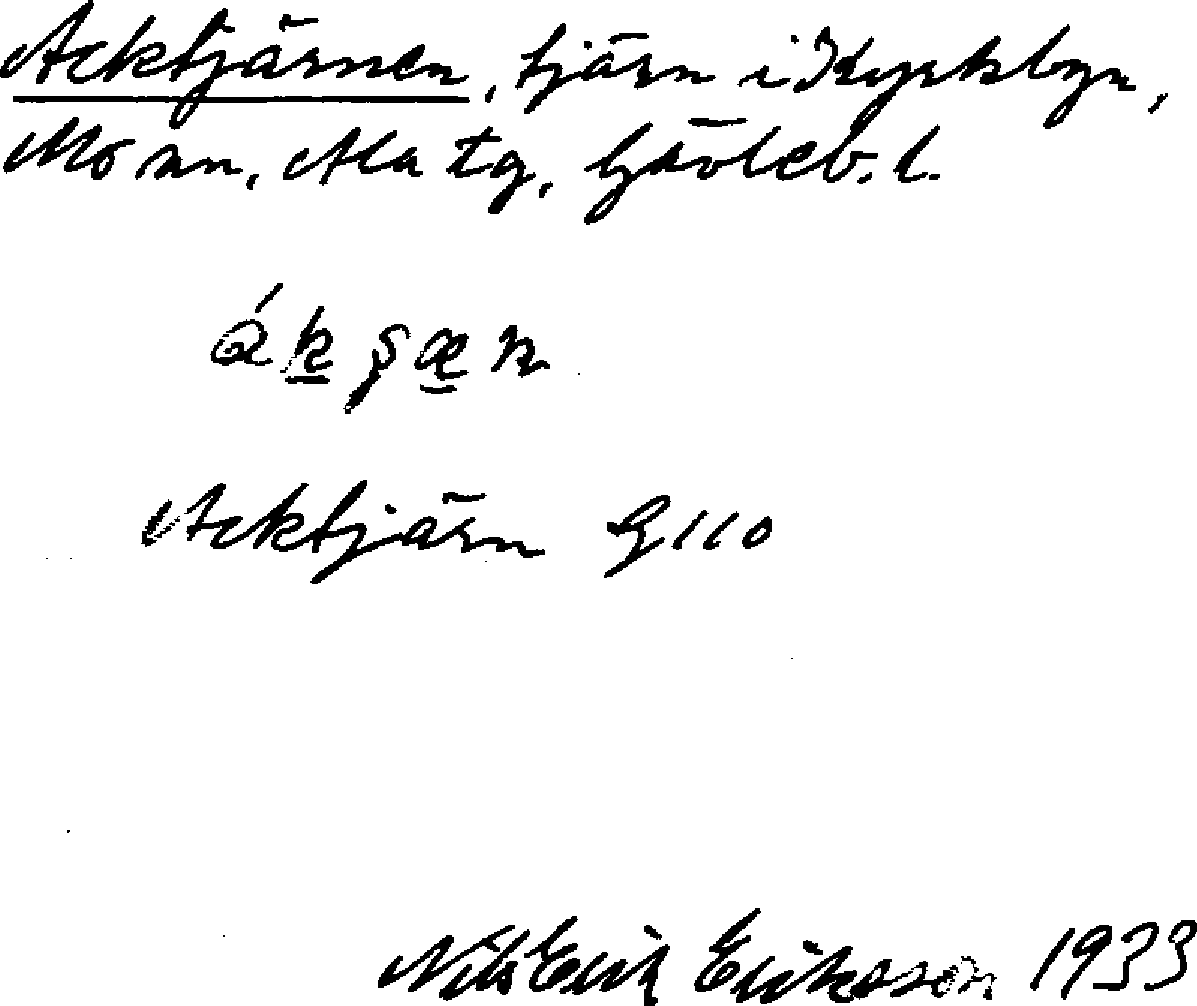 Acktjärnen, tjärn i Kyrkbyn,
Mo sn, Ala tg, Gävleb. l.
ák̲ʂæ̲n
Acktjärn G110
Nils Erik Eriksson 1933